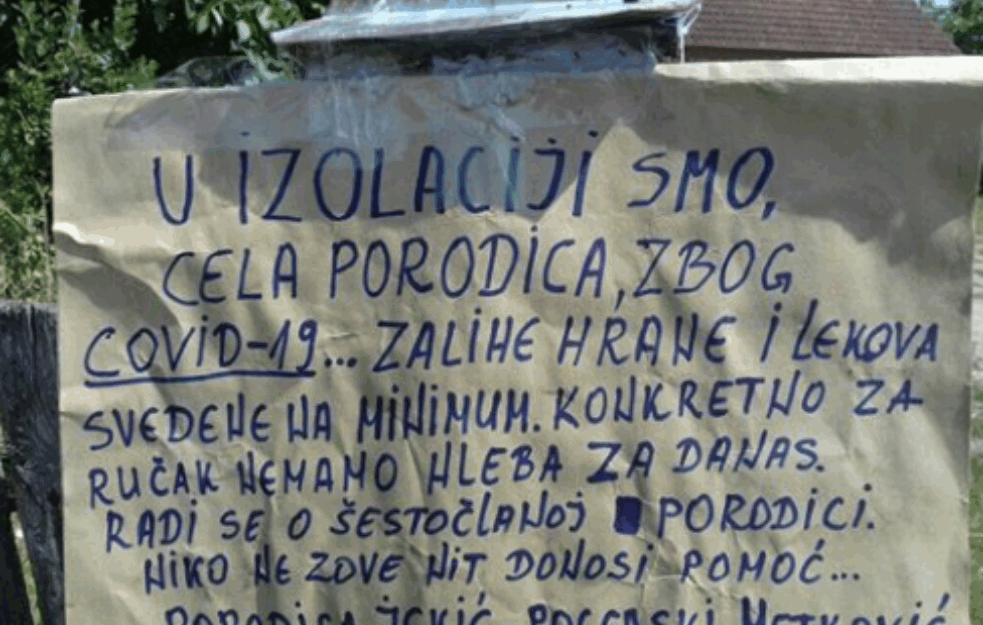 U IZOLACIJI SMO,
CELA PORODICA, ZBOG
COVID-19... ZALIHE HRANE I LEKOVA
SVEDENE NA MINIMUM. KONKRETNO ZA
RUČAK NEMAMO HLEBA ZA DANAS.
RADI SE O ŠESTOČLANOJ PORODICI.
NIKO NE ZOVE NIT DONOSI POMOĆ...
PORODICA